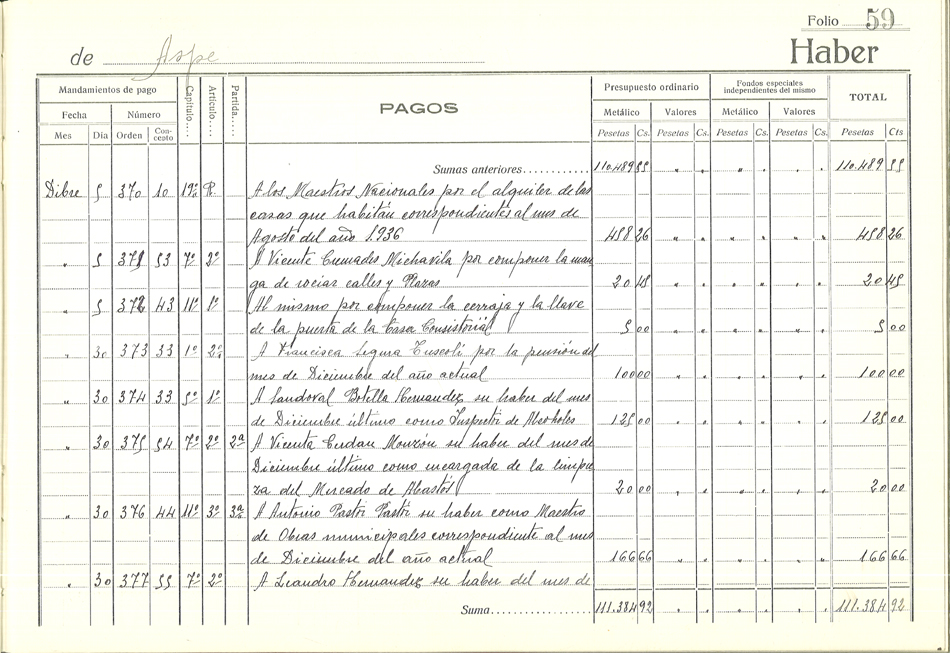 Folio 59
de Aspe Haber
Mandamientos de pago Capítulo.... Artículo.... Partida..... PAGOS Presupuesto ordinario Fondos especiales independientes del mismo TOTAL
Fecha Número Metálico Valores Metálico Valores
Mes Día Orden Concepto Pesetas Cs. Pesetas Cs. Pesetas Cs. Pesetas Cs. Pesetas Cts
Sumas anteriores............ 110.489 55 " " " . . . 110.489 55
Dibre 5 370 10 19º R. A los Maestros Nacionales por el alquiler de las
casas que habitán correspondientes al mes de
Agosto del año 1.936 458 26 " " " " " " 458 26
" 5 371 53 7º 2º A Vicente Cremades Michavila por componer la man
ga de rociar calles y Plazas 20 45 " " " " " " 20 45
" 5 372 43 11º 1º Al mismo por componer la cerraja y la llave
de la puerta de la Casa Consistorial 5 00 " " " " " " 5 00
" 30 373 33 1º 2º A Francisca Segura por la pensión del
mes de Diciembre del año actual 100 00 " " " " " " 100 00
" 30 374 33 5º 1º A Sandoval Botella Hernandez su haber del mes
de Diciembre último como Inspector de Alcoholes 125 00 " " " " " " 125 00
" 30 375 54 7º 2º 2ª A Vicenta Monzón su haber del mes de
Diciembre último como encargada de la limpie
za del Mercado de Abastos 20 00 " " " " " " 20 00
" 30 376 44 11º 3º 3ª A Antonio Pastor Pastor su haber como Maestro
de Obras municipales correspondiente al mes
de Diciembre del año actual 166 66 " " " " " " 166 66
" 30 377 55 7º 2º A Leandro Hernandez su haber del mes de
Suma.................... 111.384 92 " " " " " " 111.384 92